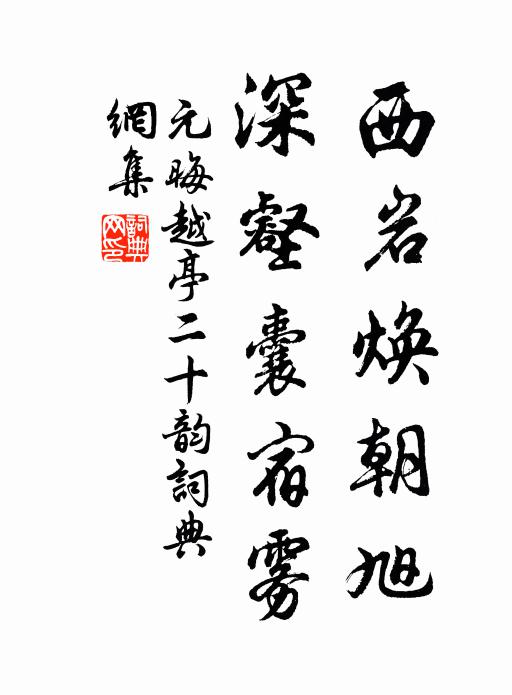 西岩焕朝旭
深壑囊宿雾
元晦越亭二十韵詞典
網集
詞典網印